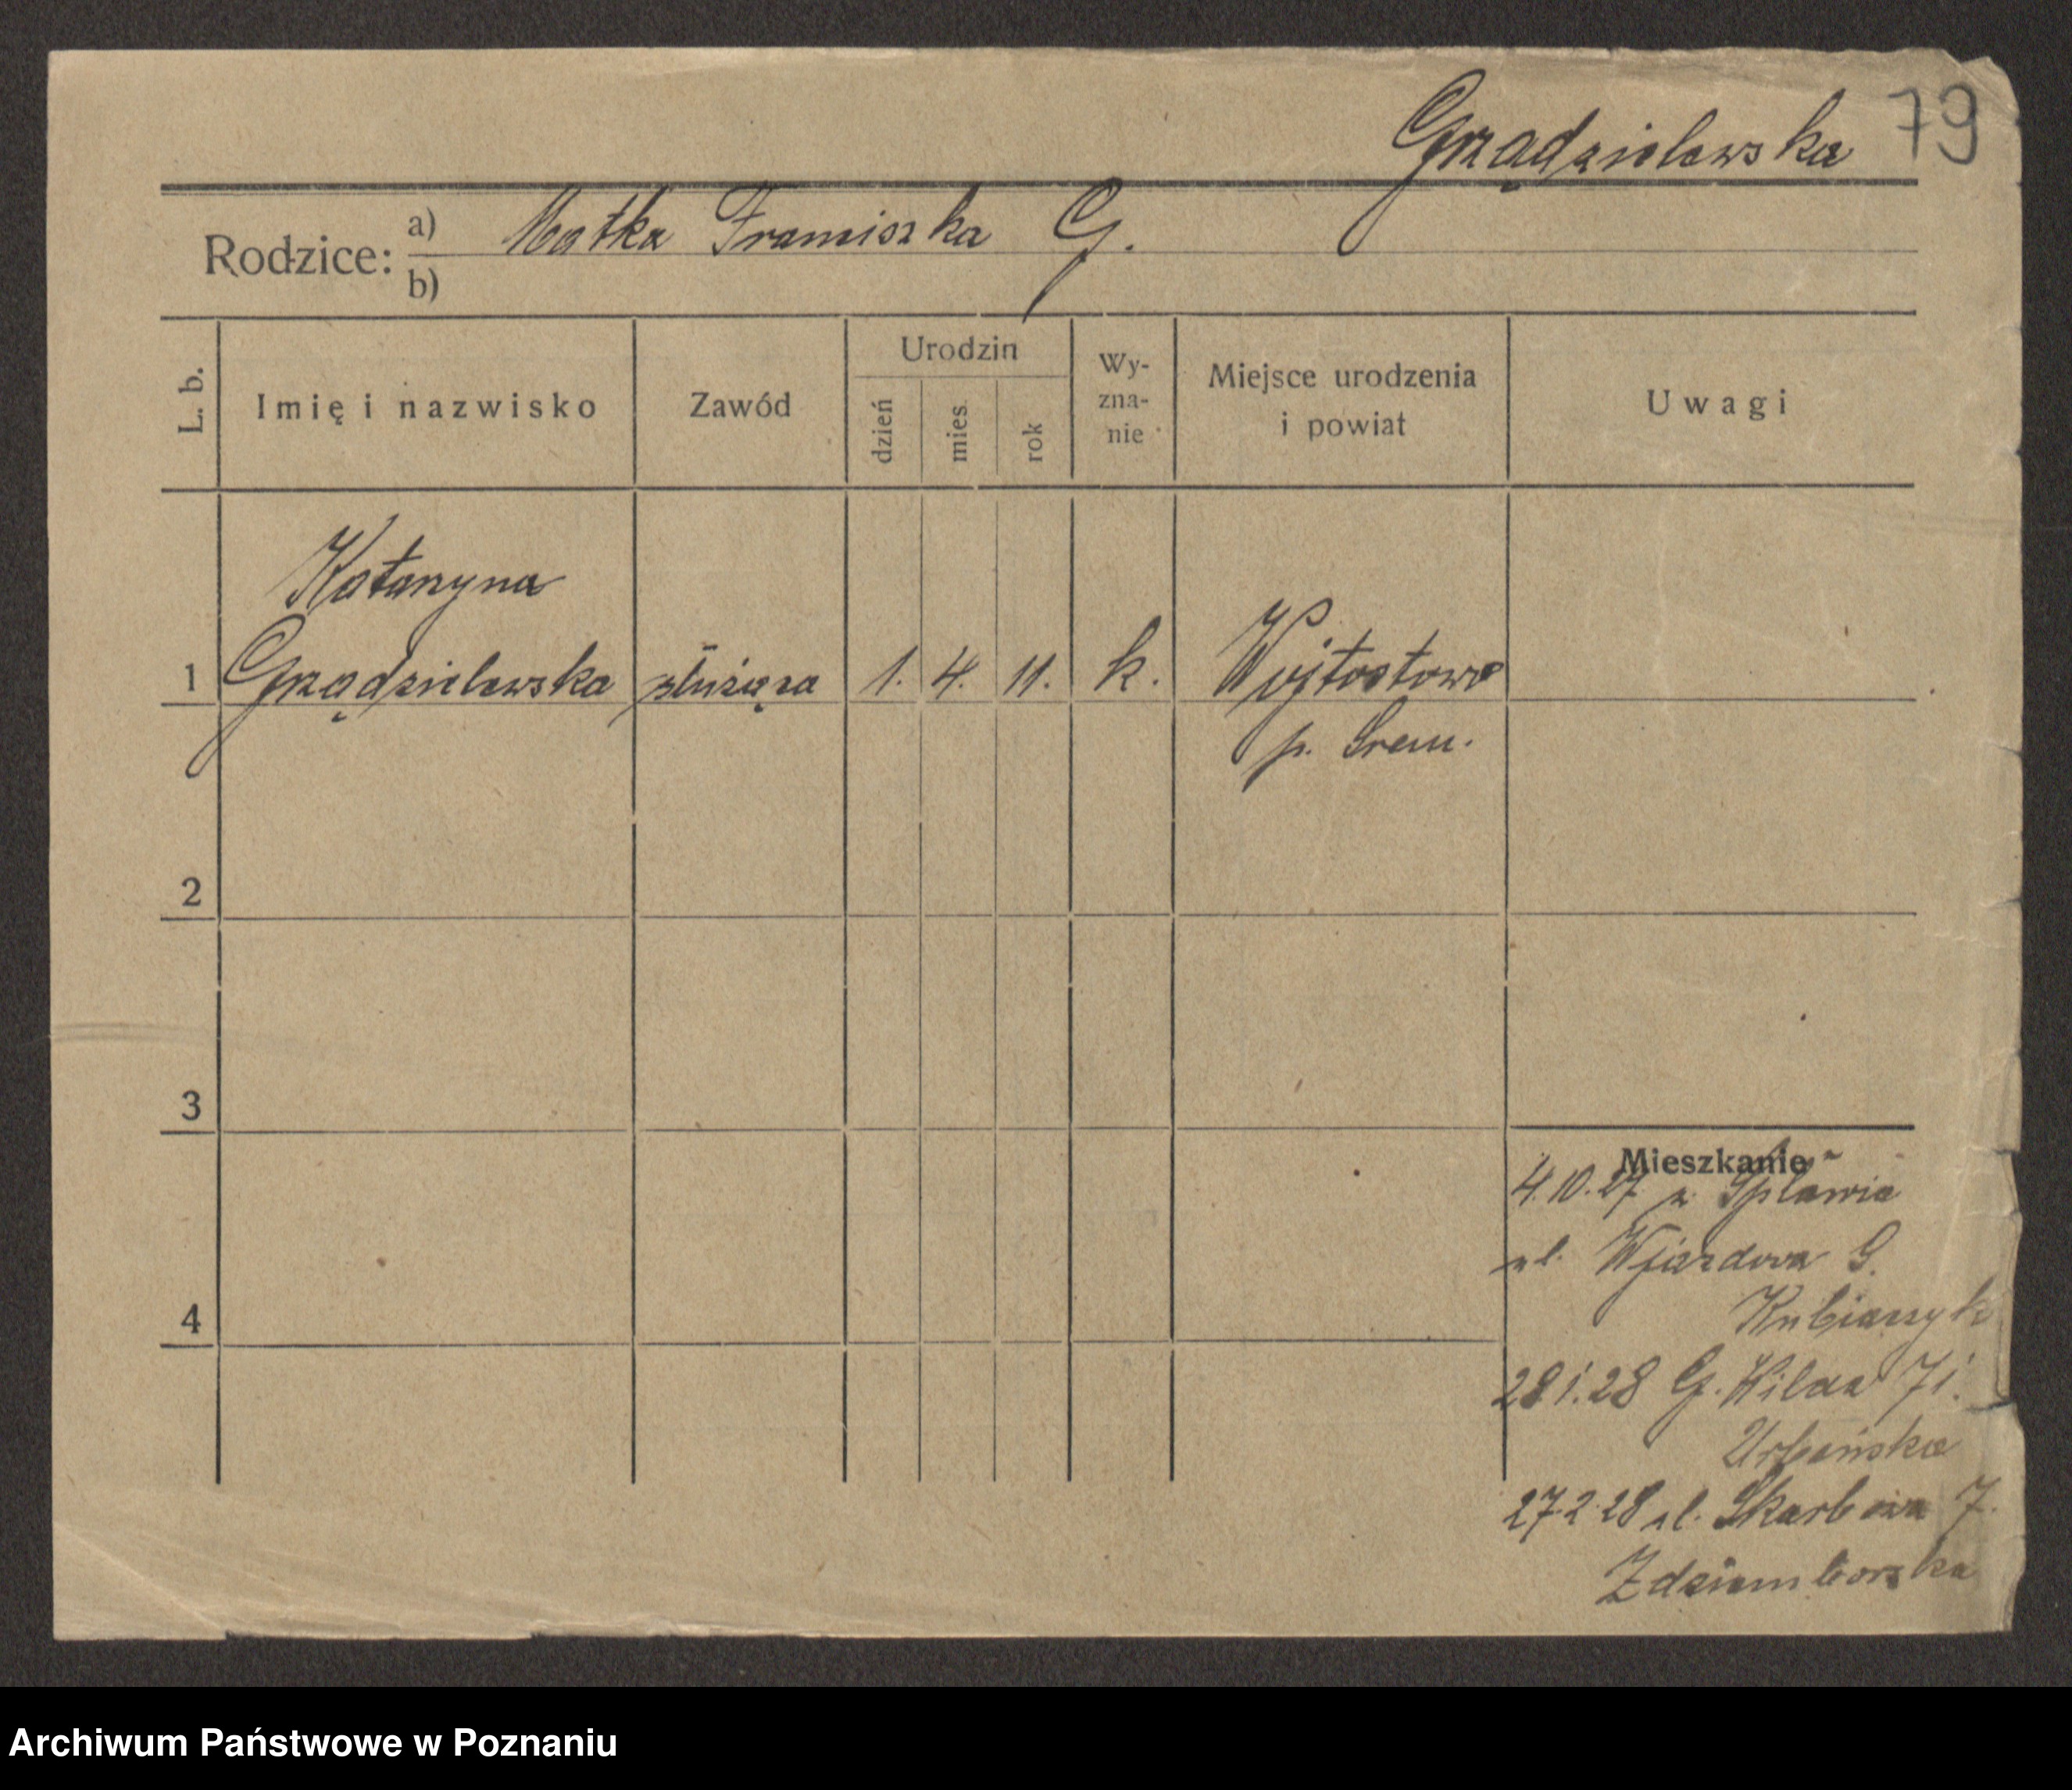 Grządzielewska 79
Rodzice: a) Matka Franciszka G.
b)
L. b.
Imię i nazwisko
Zawód
Urodzin
dzień
mies.
rok
Wy-
zna-
nie
Miejsce urodzenia
i powiat
Uwagi
Katarzyna
1 Grządzielewska służąca 1. 4. 11. k. Wojtostowo
p. Śrem.
2
3
4
Mieszkanie
4.10.27 z Spławia
ul. Wjazdowa 9.
Kubiaczyk
28.1.28 G. Wilda 71.
Urbańska
27.2.28 ul. Skarbowa 7.
Zdziemborska
Archiwum Państwowe w Poznaniu